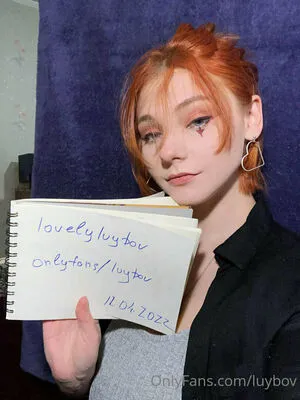 lovelyluybov
onlyfans/luybov
12.04.2022
OnlyFans.com/luybov